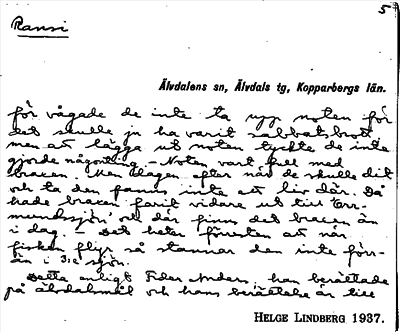 5
Ransi
Älvdalens sn, Älvdals tg, Kopparbergs län.
för vågade de inte ta upp noten för
det skulle ju ha varit sabbatsbrott
men att lägga ut noten tyckte de inte
gjorde någonting. - Noten vart full med
braxen. Men dagen efter när de skulle dit
och ta den fanns inte ett liv där. Då
hade braxen farit vidare ut till
och där finns det braxen än
i dag. - Det heter förresten att när
fisken flyr så stannar den inte förr-
än i 3:e sjön.
Detta enligt Anders. han berättade
på älvdalsmål och hans berättelse är
HELGE LINDBERG 1937.